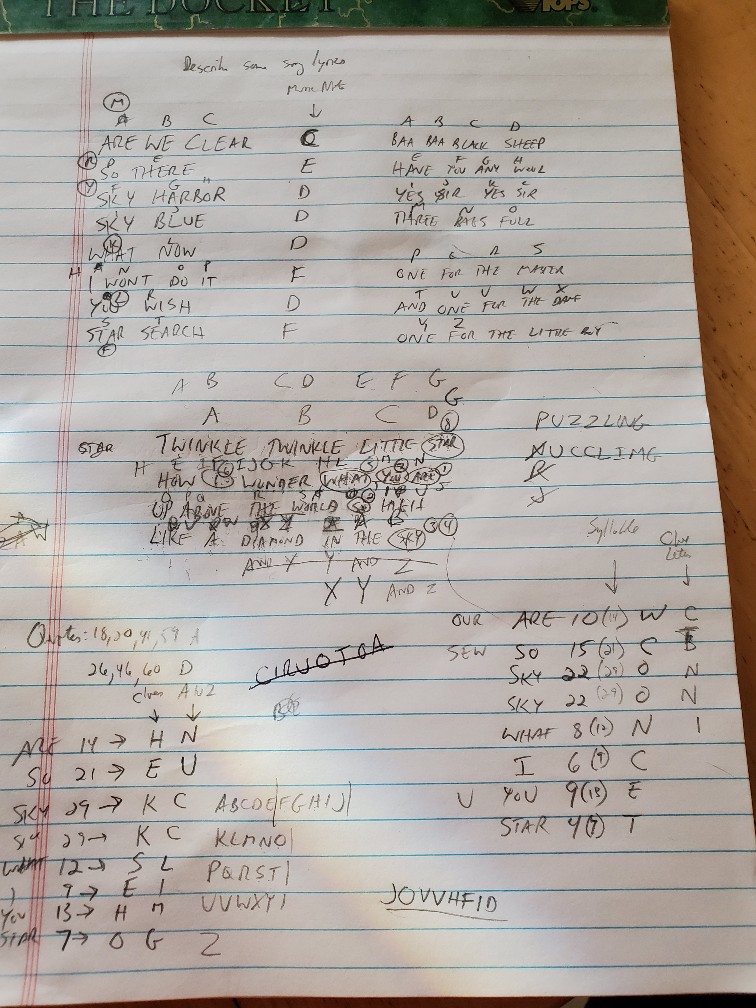 THE DOCKET
TOPS
Describe some song lyrics
Music Note
M
A B C
ARE WE CLEAR C
SO THERE E
SKY HARBOR D
SKY BLUE D
WHAT NOW D
I WONT DO IT F
YOU WISH D
STAR SEARCH F
A B C D
BAA BAA BLACK SHEEP
E F G H
HAVE YOU ANY WOOL
YES SIR YES SIR
M N O
THREE BAGS FULL
P Q R S
ONE FOR THE MASTER
T U V W X
AND ONE FOR THE DAME
Y Z
ONE FOR THE LITTLE BOY
A B C D E F G
G
A B C D
STAR TWINKLE TWINKLE LITTLE STAR
HOW I WONDER WHAT YOU ARE
UP ABOVE THE WORLD SO HIGH
LIKE A DIAMOND IN THE SKY
AND X Y AND Z
X Y AND Z
PUZZLING
AUCCLIMG
Syllable
Clue Letter
OUR ARE 10(14) W C
SEW SO 15(21) C B
SKY 22(29) O N
SKY 22(29) O N
WHAT 8(12) N I
I 6(9) C
U YOU 9(13) E
STAR 4(7) T
Quotes: 18,20,41,59 A
26,46,60 D
clues A1Z
CIRUOTOA
ARE 14→ H N
SO 21→ E U
SKY 29→ K C ABCDE|FGHIJ|
SKY 29→ K C KLMNO|
WHAT 12→ S L PQRST|
I 9→ E I UVWXY|
YOU 13→ H M
STAR 7→ O G Z
JOVVHFID